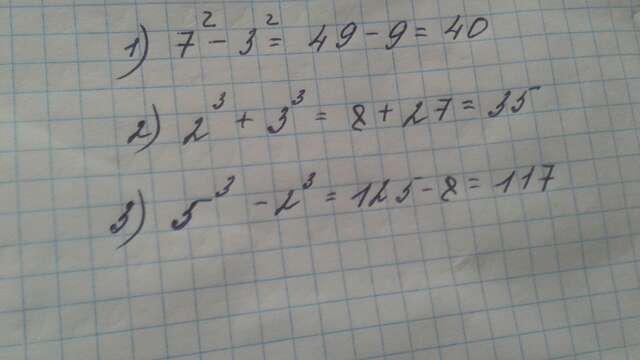 1) 7² - 3² = 49 - 9 = 40
2) 2³ + 3³ = 8 + 27 = 35
3) 5³ - 2³ = 125 - 8 = 117